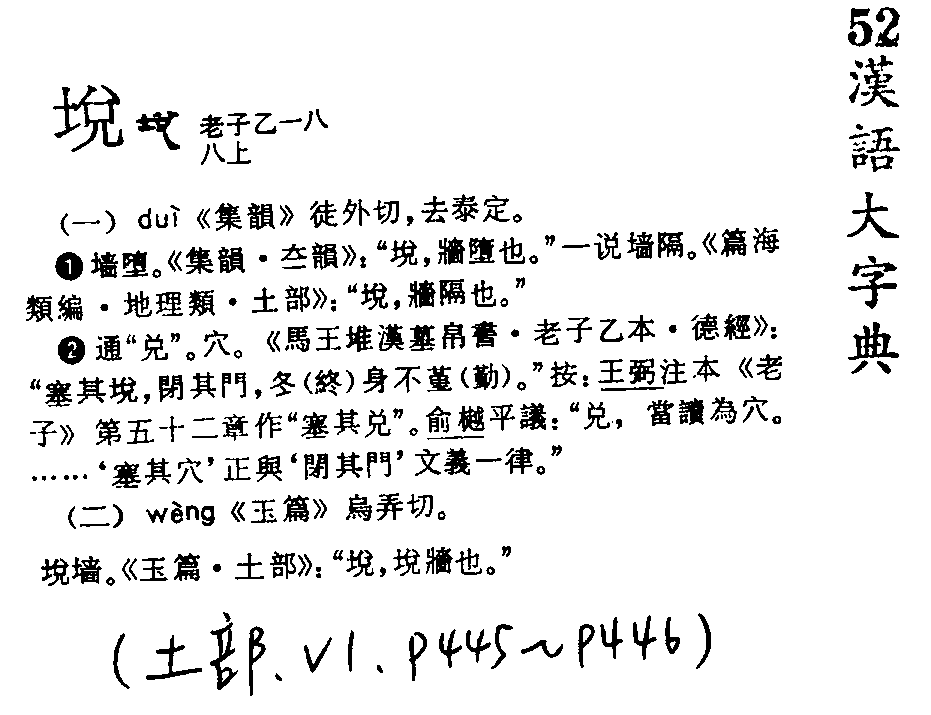 52
漢語大字典
埦 老子乙一八
八上
(一) duì《集韻》徒外切,去泰定。
❶墙墮。《集韻·夳韻》:“㙂,牆墮也。”一说墙隔。《篇海
類編·地理類·土部》:“㙂,牆隔也。”
❷通“兑”。穴。《馬王堆漢墓帛書·老子乙本·德經》:
“塞其㙂,閉其門,冬(終)身不堇(勤)。”按:王弼注本《老
子》第五十二章作“塞其兑”。俞樾平議:“兑,當讀為穴。
……‘塞其穴’正與‘閉其門’文義一律。”
(二) wèng《玉篇》烏弄切。
㙂墙。《玉篇·土部》:“㙂,㙂牆也。”
(土部、V1、P445~P446)